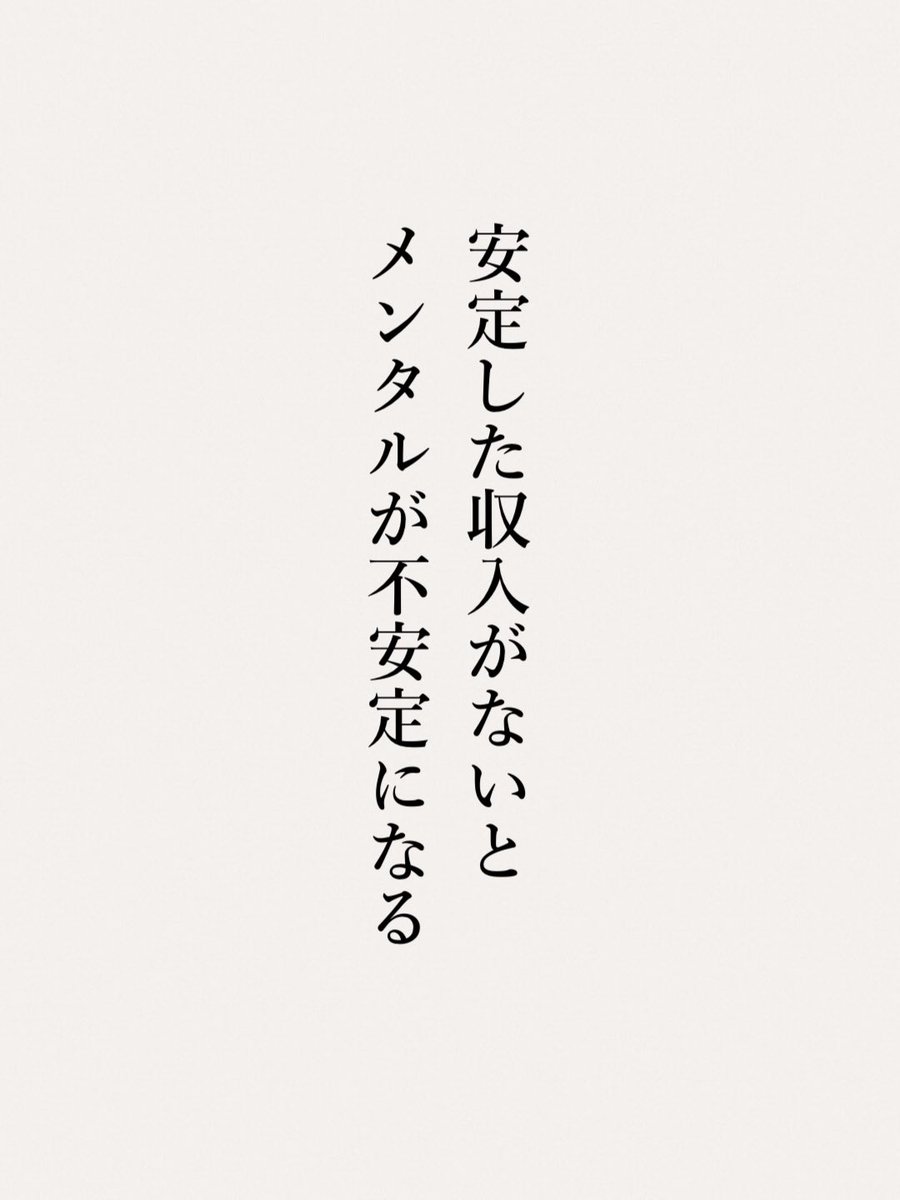 安定した収入がないと
メンタルが不安定になる